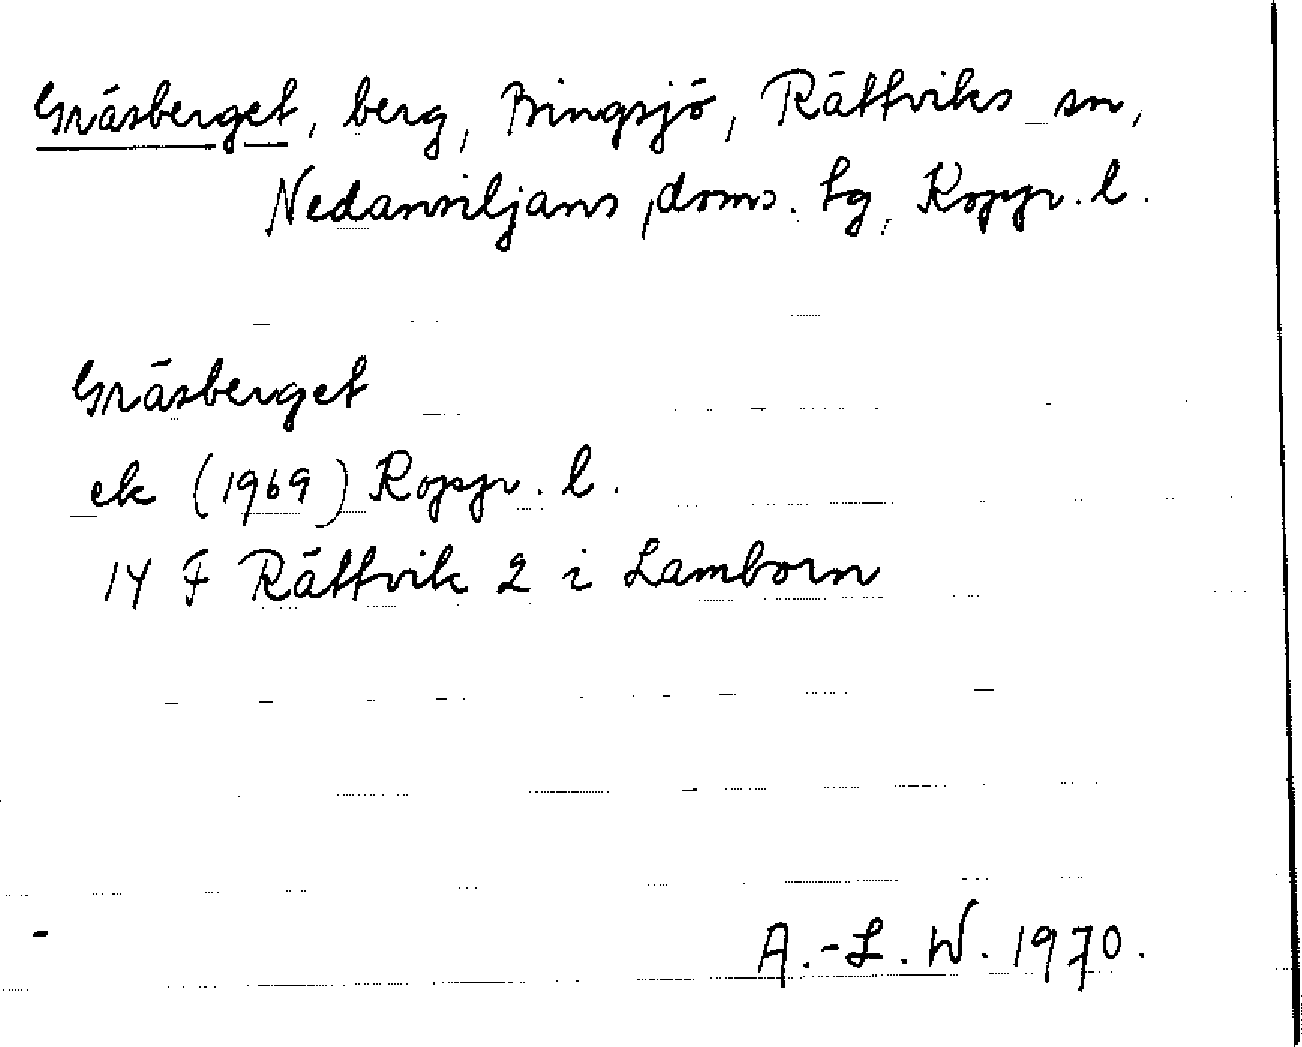 Gräsberget, berg, Bingsjö, Rättviks sn,
Nedansiljans, doms. tg, Koppr. l.
Gräsberget
ek (1969) Koppr. l.
14 F Rättvik 2 i Lamborn
A.-L. W. 1970.